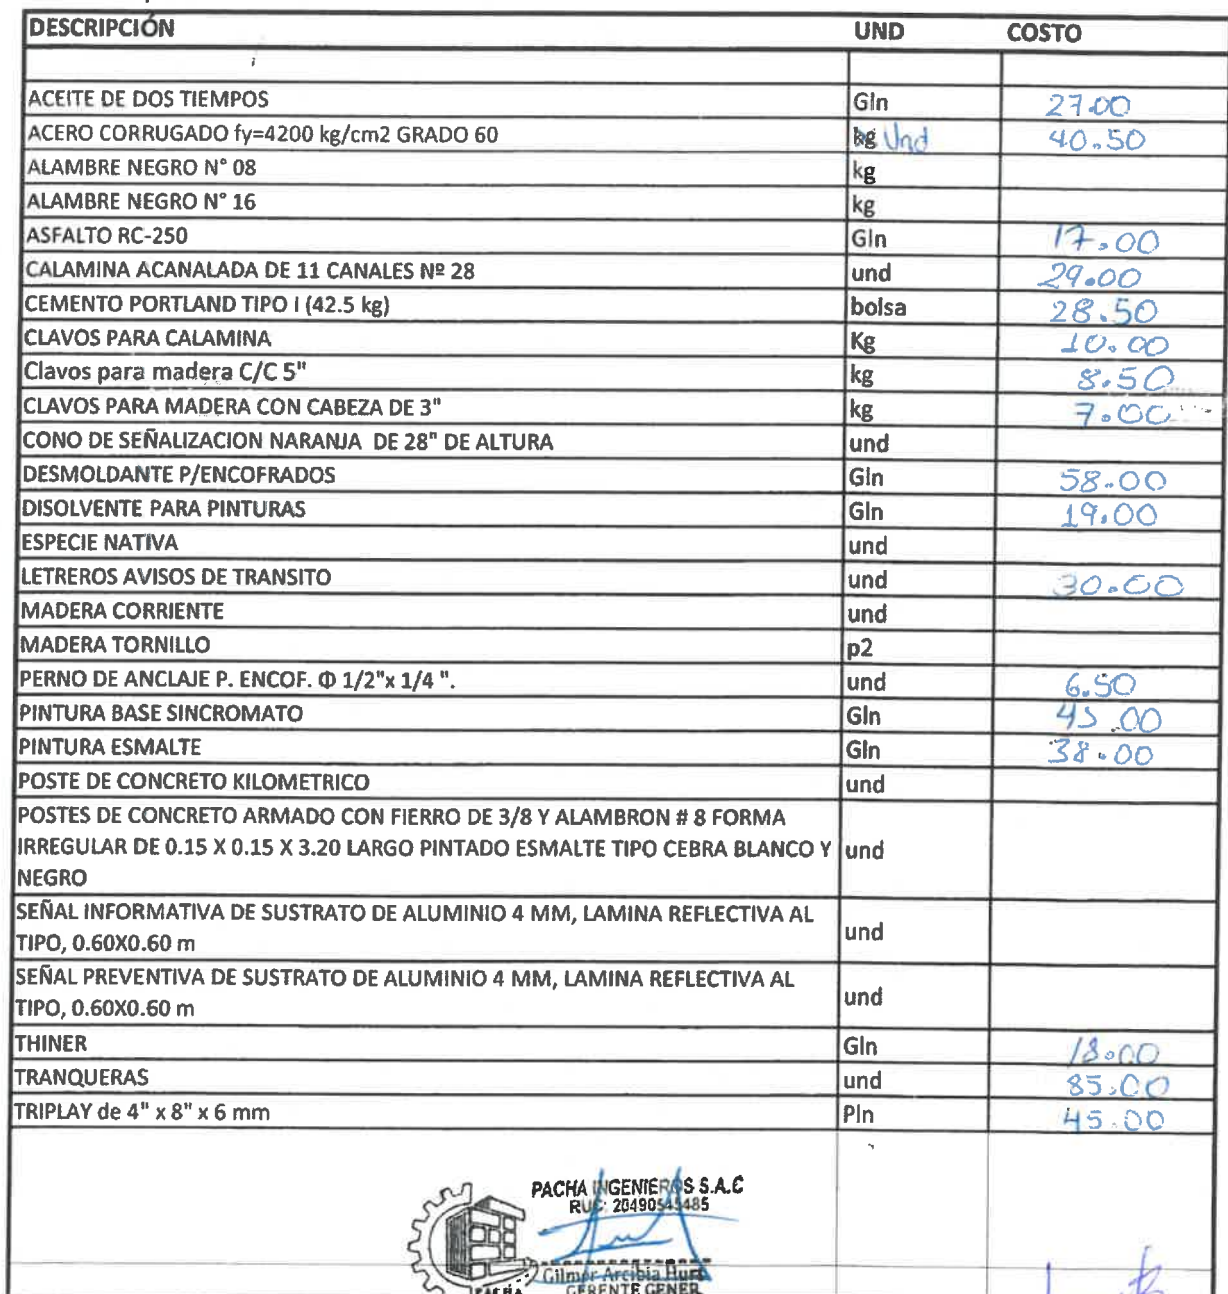 DESCRIPCIÓN UND COSTO
ACEITE DE DOS TIEMPOS Gln 27.00
ACERO CORRUGADO fy=4200 kg/cm2 GRADO 60 kg Und 40.50
ALAMBRE NEGRO N° 08 kg
ALAMBRE NEGRO N° 16 kg
ASFALTO RC-250 Gln 17.00
CALAMINA ACANALADA DE 11 CANALES Nº 28 und 29.00
CEMENTO PORTLAND TIPO I (42.5 kg) bolsa 28.50
CLAVOS PARA CALAMINA Kg 10.00
Clavos para madera C/C 5" kg 8.50
CLAVOS PARA MADERA CON CABEZA DE 3" kg 7.00
CONO DE SEÑALIZACION NARANJA DE 28" DE ALTURA und
DESMOLDANTE P/ENCOFRADOS Gln 58.00
DISOLVENTE PARA PINTURAS Gln 19.00
ESPECIE NATIVA und
LETREROS AVISOS DE TRANSITO und 30.00
MADERA CORRIENTE und
MADERA TORNILLO p2
PERNO DE ANCLAJE P. ENCOF. Φ 1/2"x 1/4 ". und 6.50
PINTURA BASE SINCROMATO Gln 45.00
PINTURA ESMALTE Gln 38.00
POSTE DE CONCRETO KILOMETRICO und
POSTES DE CONCRETO ARMADO CON FIERRO DE 3/8 Y ALAMBRON # 8 FORMA
IRREGULAR DE 0.15 X 0.15 X 3.20 LARGO PINTADO ESMALTE TIPO CEBRA BLANCO Y und
NEGRO
SEÑAL INFORMATIVA DE SUSTRATO DE ALUMINIO 4 MM, LAMINA REFLECTIVA AL
TIPO, 0.60X0.60 m und
SEÑAL PREVENTIVA DE SUSTRATO DE ALUMINIO 4 MM, LAMINA REFLECTIVA AL
TIPO, 0.60X0.60 m und
THINER Gln 18.00
TRANQUERAS und 85.00
TRIPLAY de 4" x 8" x 6 mm Pln 45.00
PACHA INGENIEROS S.A.C
RUC: 20490545485
Gilmer Arcibia
GERENTE GENER